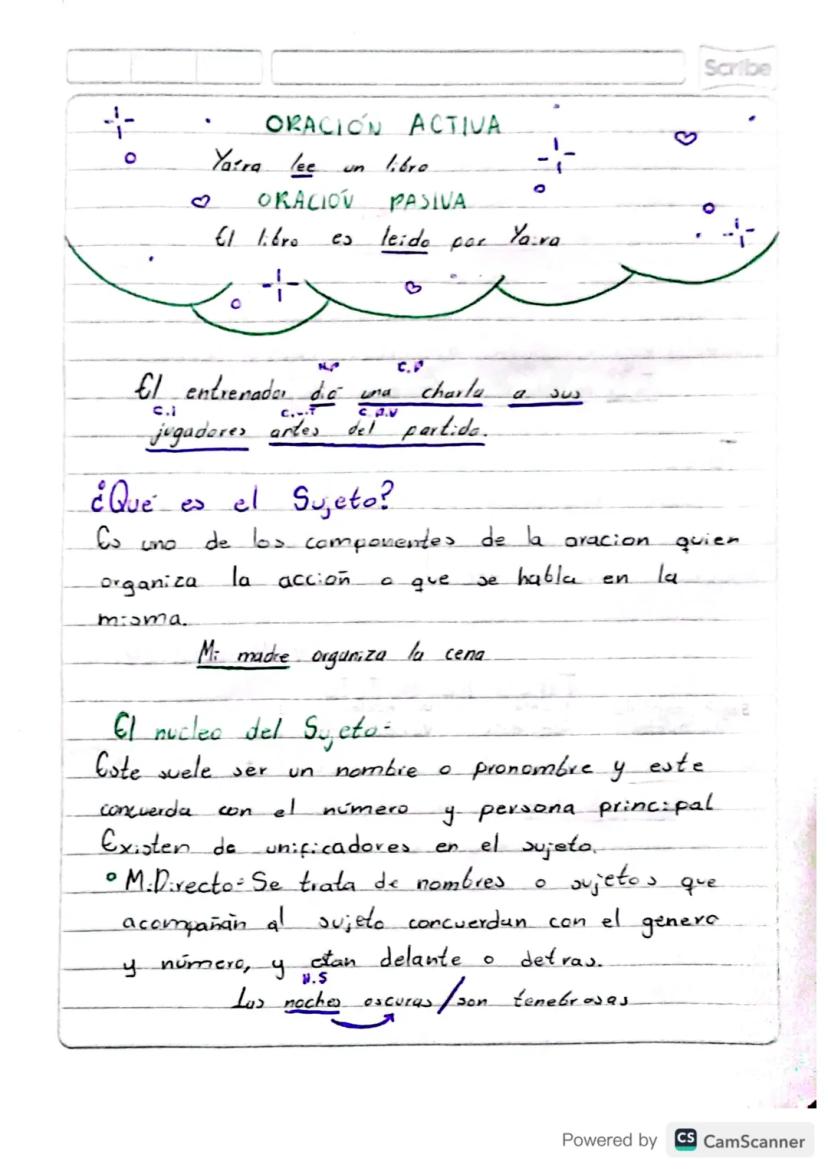 Scribe
ORACIÓN ACTIVA
Yaira lee un libro
ORACIÓN PASIVA
El libro es leido por Yaira
N.P C.D
El entrenador dió una charla a sus
C.I
jugadores antes del partido.
¿Qué es el Sujeto?
Es uno de los componentes de la oracion quien
organiza la acción o que se habla en la
misma.
Mi madre organiza la cena
El nucleo del Sujeto:
Este suele ser un nombre o pronombre y este
concuerda con el número y persona principal
Existen de unificadores en el sujeto.
° M.Directo: Se trata de nombres o sujetos que
acompañan al sujeto concuerdan con el genero
y número, y etan delante o detras.
N.S
Las noches oscuras / son tenebrosas
Powered by CS CamScanner